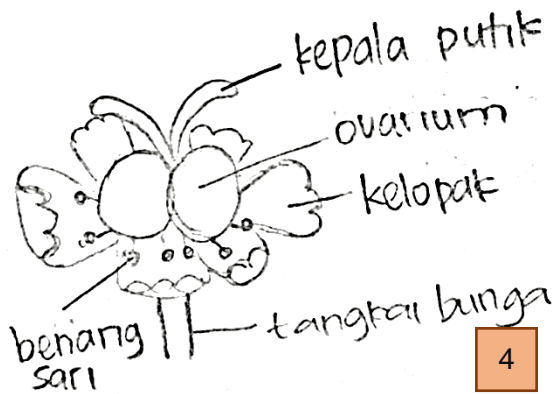 kepala putik
ovarium
kelopak
tangkai bunga
benang
sari
4